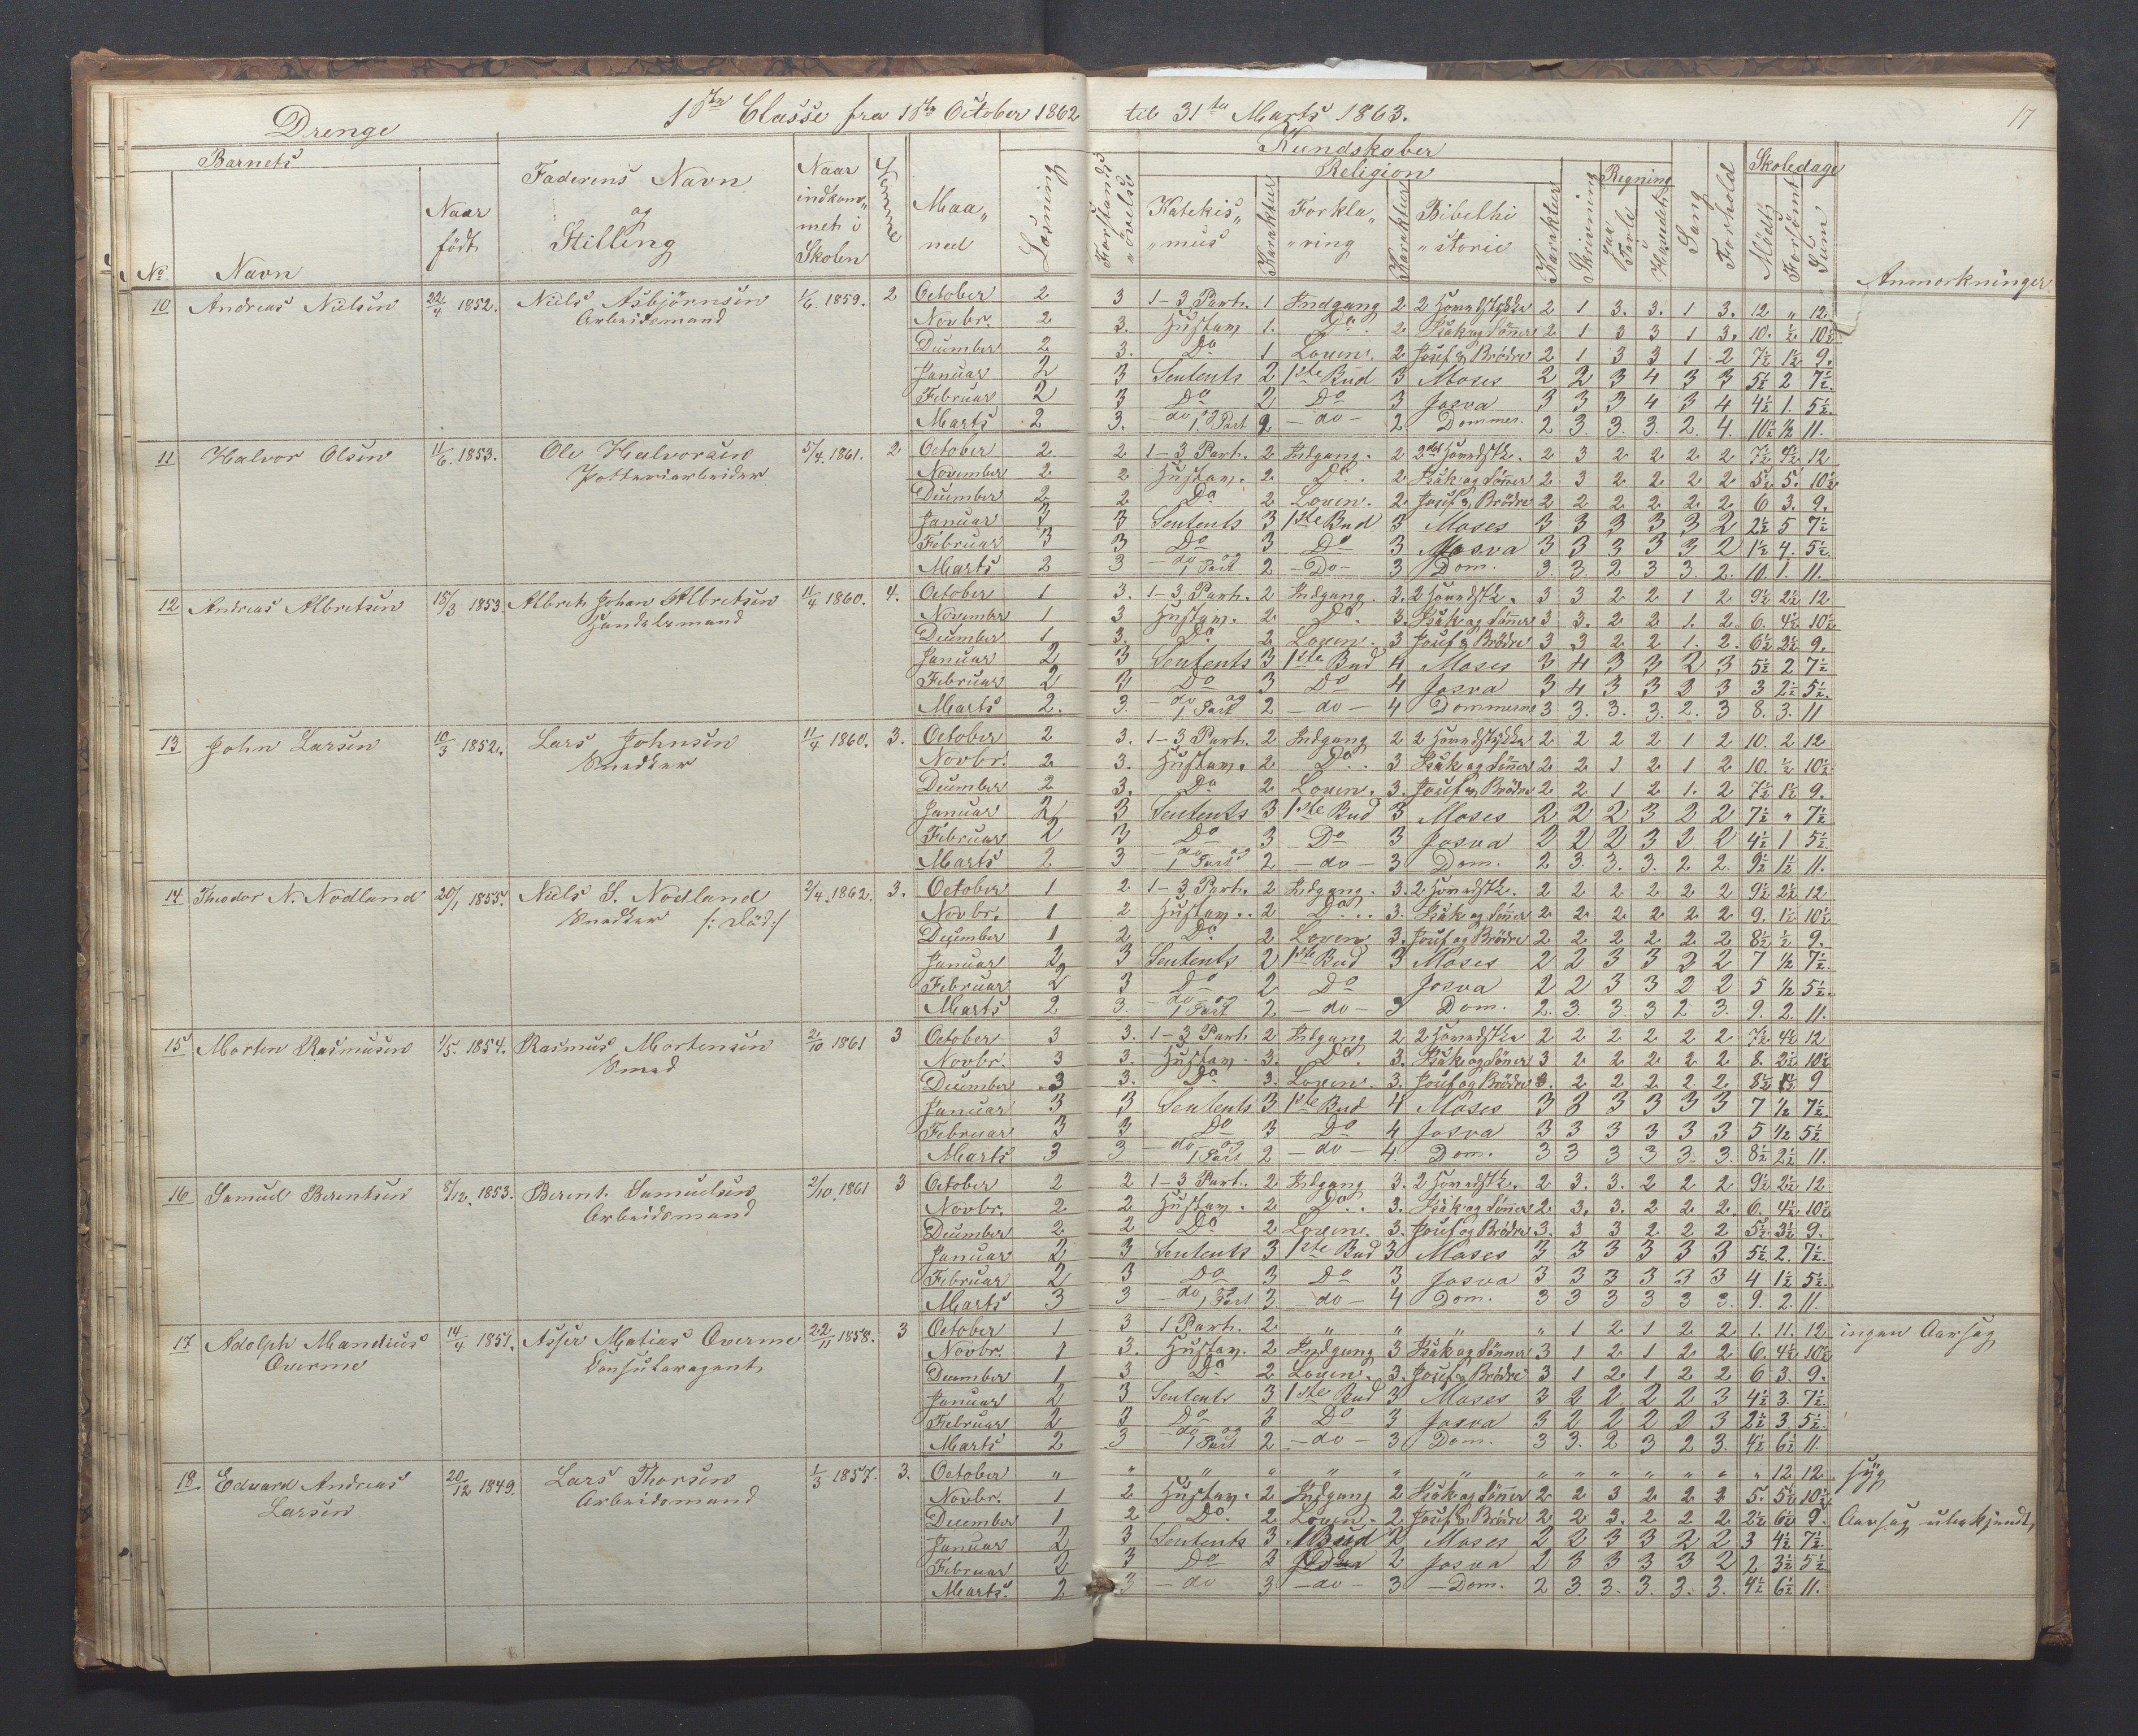 Drenge 1ste Classe fra 1ste October 1862 til 31te Marts 1863. 17
Barnets
No. Navn
Naar født
Faderens Navn og Stilling
Naar indkommet i Skolen
Evne
Maaned
Læsning
Forstandsøvelse
Kundskaber
Religion
Katekismus Karakter Forklaring Karakter Bibelhistorie Karakter
Skrivning
Regning
paa Tavle Hovedet
Sang
Forhold
Skoledage
Mødt Forsømt Sum
Anmærkninger
10 Andreas Nielsen 22/4 1852. Niels Asbjörnsen 1/6. 1859. 2 October 2 3 1-3 Part. 1 Indgang 2 2 Hovedstykke 2 1 3. 3. 1 3. 12 „ 12
Arbeidsmand Novbr. 2 3. 1. Do. 2 Isak og Sønner 2 1 3 3 1 3. 10. ½ 10½
December 2 3. Do 1 Loven. 2 Josef & Brödre 2 1 3 3 1 2 7½ 1½ 9.
Januar 2 3 Sentents 2 1ste Bud 3 Moses 2 2 3 4 3 3 5½ 2 7½.
Februar 2 3 Do 2 Do 3 Josva 3 3 3 4 3 4 4½ 1. 5½.
Marts 2 3. do og 1 Part 2 - do - 2 Dommer. 2 3. 3. 3. 2. 4. 10½ ½ 11.
11 Halvor Olsen 11/6. 1853. Ole Halvorsen 5/4. 1861. 2 October 2 2 1-3 Part. 2 Indgang. 2 2det Hovedstk. 2 3 2 2 2 2 7½ 4½ 12
Potteriarbeider November 2 2 2. Do. 2 Isak og Sønner 2 3 2 2 2 2 5½ 5. 10½
December 2 2 Do 2 Loven. 2 Josef & Brödre 2 2 2 2 2 2 6 3. 9.
Januar 3 3 Sentents 3 1ste Bud 3 Moses 3 3 3 3 3 2 2½ 5 7½
Februar 3 3 Do 3 Do 3 Josva 3 3 3 3 3 2 1½ 4. 5½.
Marts 2 3 do og 1 Part 2 - Do - 3 Dom. 3. 3. 2 3 3. 2. 10. 1. 11.
12 Andreas Albretsen 15/3 1853 Albret Johan Albretsen 11/4 1860. 4. October 1 3. 1-3 Part. 2 Indgang. 3. 2 Hovedstk. 3 3 2 2 1 2 9½ 2½ 12
Handelsmand November 1 3 2. Do. 3. Isak og Sønner 3 3. 2 2 1. 2. 6. 4½ 10½
December 1 3. Do. 2 Loven. 3 Josef & Brödre 3 3 2 2 1. 2. 6½ 2½ 9.
Januar 2 3 Sentents 3 1ste Bud 4 Moses 3 4 3 3 2 3 5½ 2 7½
Februar 2 3 Do 3 Do 4 Josva 3 4 3 3 3 3 3 2½ 5½.
Marts 2. 3. do og 1 Part 2 - do - 4 Dommerne 3 3. 3. 3. 2. 3 8. 3. 11
13 John Larsen 10/3 1852. Lars Johnsen 11/4 1860. 3. October 2 3. 1-3 Part. 2 Indgang 2 2 Hovedstykke 2 2 2 2 1 2 10. 2 12
Snedker Novbr. 2 3. 2 Do. 3 Isak og Sønner 2 2 1 2 1 2 10. ½ 10½
December 2 3. Do 2 Loven. 3. Josef & Brödre 2 2 1 2 1. 2 7½ 1½ 9.
Januar 2 3 Sentents 3 1ste Bud 3 Moses 2 2 2 3 2 2 7½ „ 7½
Februar 2 3 Do 3 Do 3 Josva 2 2 2 3 2 2 4½ 1 5½
Marts 2 3 do og 1 Part 2 - do - 3 Dom. 2 3. 3. 3. 2 2. 9½ 1½ 11.
14 Theodor N. Nodland 20/1 1855. Niels S. Nodland 2/4. 1862. 3. October 1 2 1-3 Part. 2 Indgang. 3. 2 Hovedstk. 2 2 2 2 2 2 9½ 2½ 12
Snedker /: Död :/ Novbr. 1 2 2 Do. 3. Isak og Sønner 2 2 2 2 2 2 9. 1½ 10½
December 1 2 Do. 2 Loven 3. Josef og Brödre 2 2 2 2 2 2 8½ ½ 9.
Januar 2 3 Sentents 2 1ste Bud 3 Moses 2 2 3 3 2 2 7 ½ 7½
Februar 2 3 Do 2 Do Josva 2 2 3 3 2 2 5 ½ 5½.
Marts 2 3. do og 1 Part 2 - do - 3 Dom. 2. 3. 3. 3 2 3. 9. 2. 11.
15 Morten Rasmusen 1/5. 1854. Rasmus Mortensen 2/10 1861 3 October 3 3. 1-3 Part. 2 Indgang 2 2 Hovedstk 2 2 2 2 2 2 7½ 4½ 12
Smed Novbr. 3 3. 3. Do 3. Isak og Sønner 3 2 2 2 2 2 8. 2½ 10½
December 3 3. Do. 3. Loven. 3. Josef og Brödre 3. 2 2 2 2 2 8½ ½ 9
Januar 3 3 Sentents 3 1ste Bud 4 Moses 3 3 3 3 3 3 7 ½ 7½.
Februar 3 3 Do 3 Do 4 Josva 3 3 3 3 3 3 5 ½ 5½
Marts 3 3 do og 1 Part 2 - do - 4 Dom. 3 3 3 3 3. 3. 8½ 2½ 11.
16 Samuel Berentsen 8/12. 1853. Berent Samuelsen 2/10. 1861 3 October 2 2 1-3 Part. 2 Indgang 3. 2 Hovedstk. 2 3. 3. 2 2 2 9½ 2½ 12
Arbeidsmand Novbr. 2 2 2 Do. 3. Isak og Sønner 2 3. 3. 2 2 2. 6. 4½ 10½
December 2 2 Do 2 Loven. 3. Josef og Brödre 3. 3 3 2 2 2 5½ 3½ 9.
Januar 2 3 Sentents 3 1ste Bud 3 Moses 3 3 3 3 3 3 5½. 2. 7½.
Februar 2 3 Do 3 Do 3 Josva 3 3 3 3 3 3 4 1½ 5½.
Marts 3 3 do og 1 Part 3 - do - 4 Dom. 3 3 3 3 3 3. 9. 2. 11.
17 Adolph Mandius 14/4 1851. Asser Matias Overme 22/11 1858. 3 October 1 3 1 Part. 2 „ „ „ „ 1 2 1 2 2 1. 11. 12. ingen Aarsag
Overme Novbr. 1 3. 2 Indgang 3 Isak og Sønner 3 1 2 1 2 2 6. 4½ 10½
December 1 3 Do. 2 Loven. 3. Josef & Brödre 3 1 2 1 2 2 6 3. 9.
Januar 2 3 Sentents 3 1ste Bud 3 Moses 3 2 2 2 2 3 4½ 3. 7½.
Februar 2 3 Do 3 Do 3 Josva 3 2 2 2 2 3 2½ 3. 5½.
Marts 2 3 do og 1 Part 2 - do - 3 Dom. 3 3. 2 3 2 3. 4½ 6½ 11.
18. Edvard Andreas 20/12 1849. Lars Thorsen 1/3 1857. 3. October „ „ „ „ „ „ „ „ „ „ „ „ „ „ 12 12 syg
Larsen Arbeidsmand Novbr. 1 2 2 Indgang 2 Isak og Sønner 2 2 3 2 2 2 5. 5½ 10½
December 1 2 Do. 2 Loven. 2 Josef & Brödre 2 2 3. 2 2 2 2½ 6½ 9. Aarsag ubekjendt
Januar 2 3 Sentents 3 Bud 2 Moses 2 2 3 3 2 2 3 4½ 7½.
Februar 2 3 Do 3 2 Josva 2 3 3 3 3 2 2 3½ 5½
Marts. 2 3 - do 3 - do - 3 - Dom. 2 3. 3. 3. 3. 3. 4½ 6½ 11.